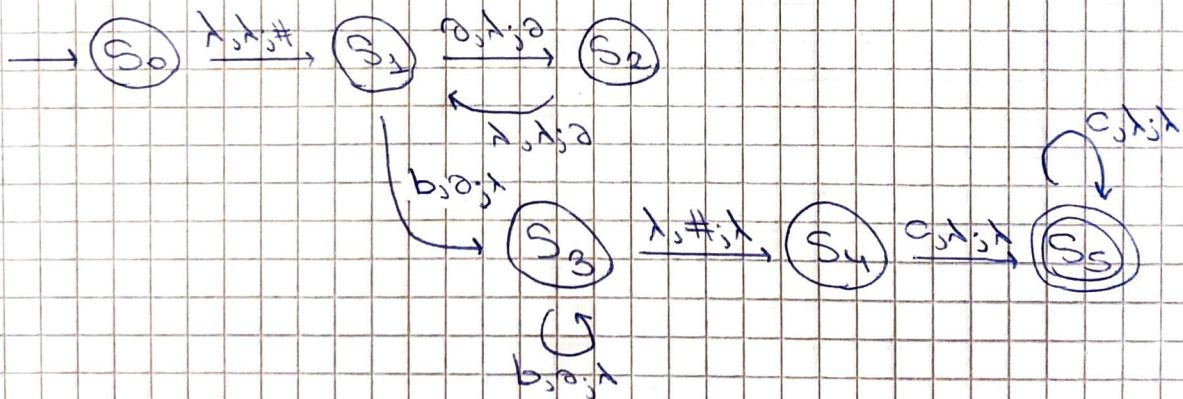 S0 λ,λ;# S1 a,λ;a S2
λ,λ;a
c,λ;λ
b,a;λ
S3 λ,#;λ S4 c,λ;λ S5
b,a;λ